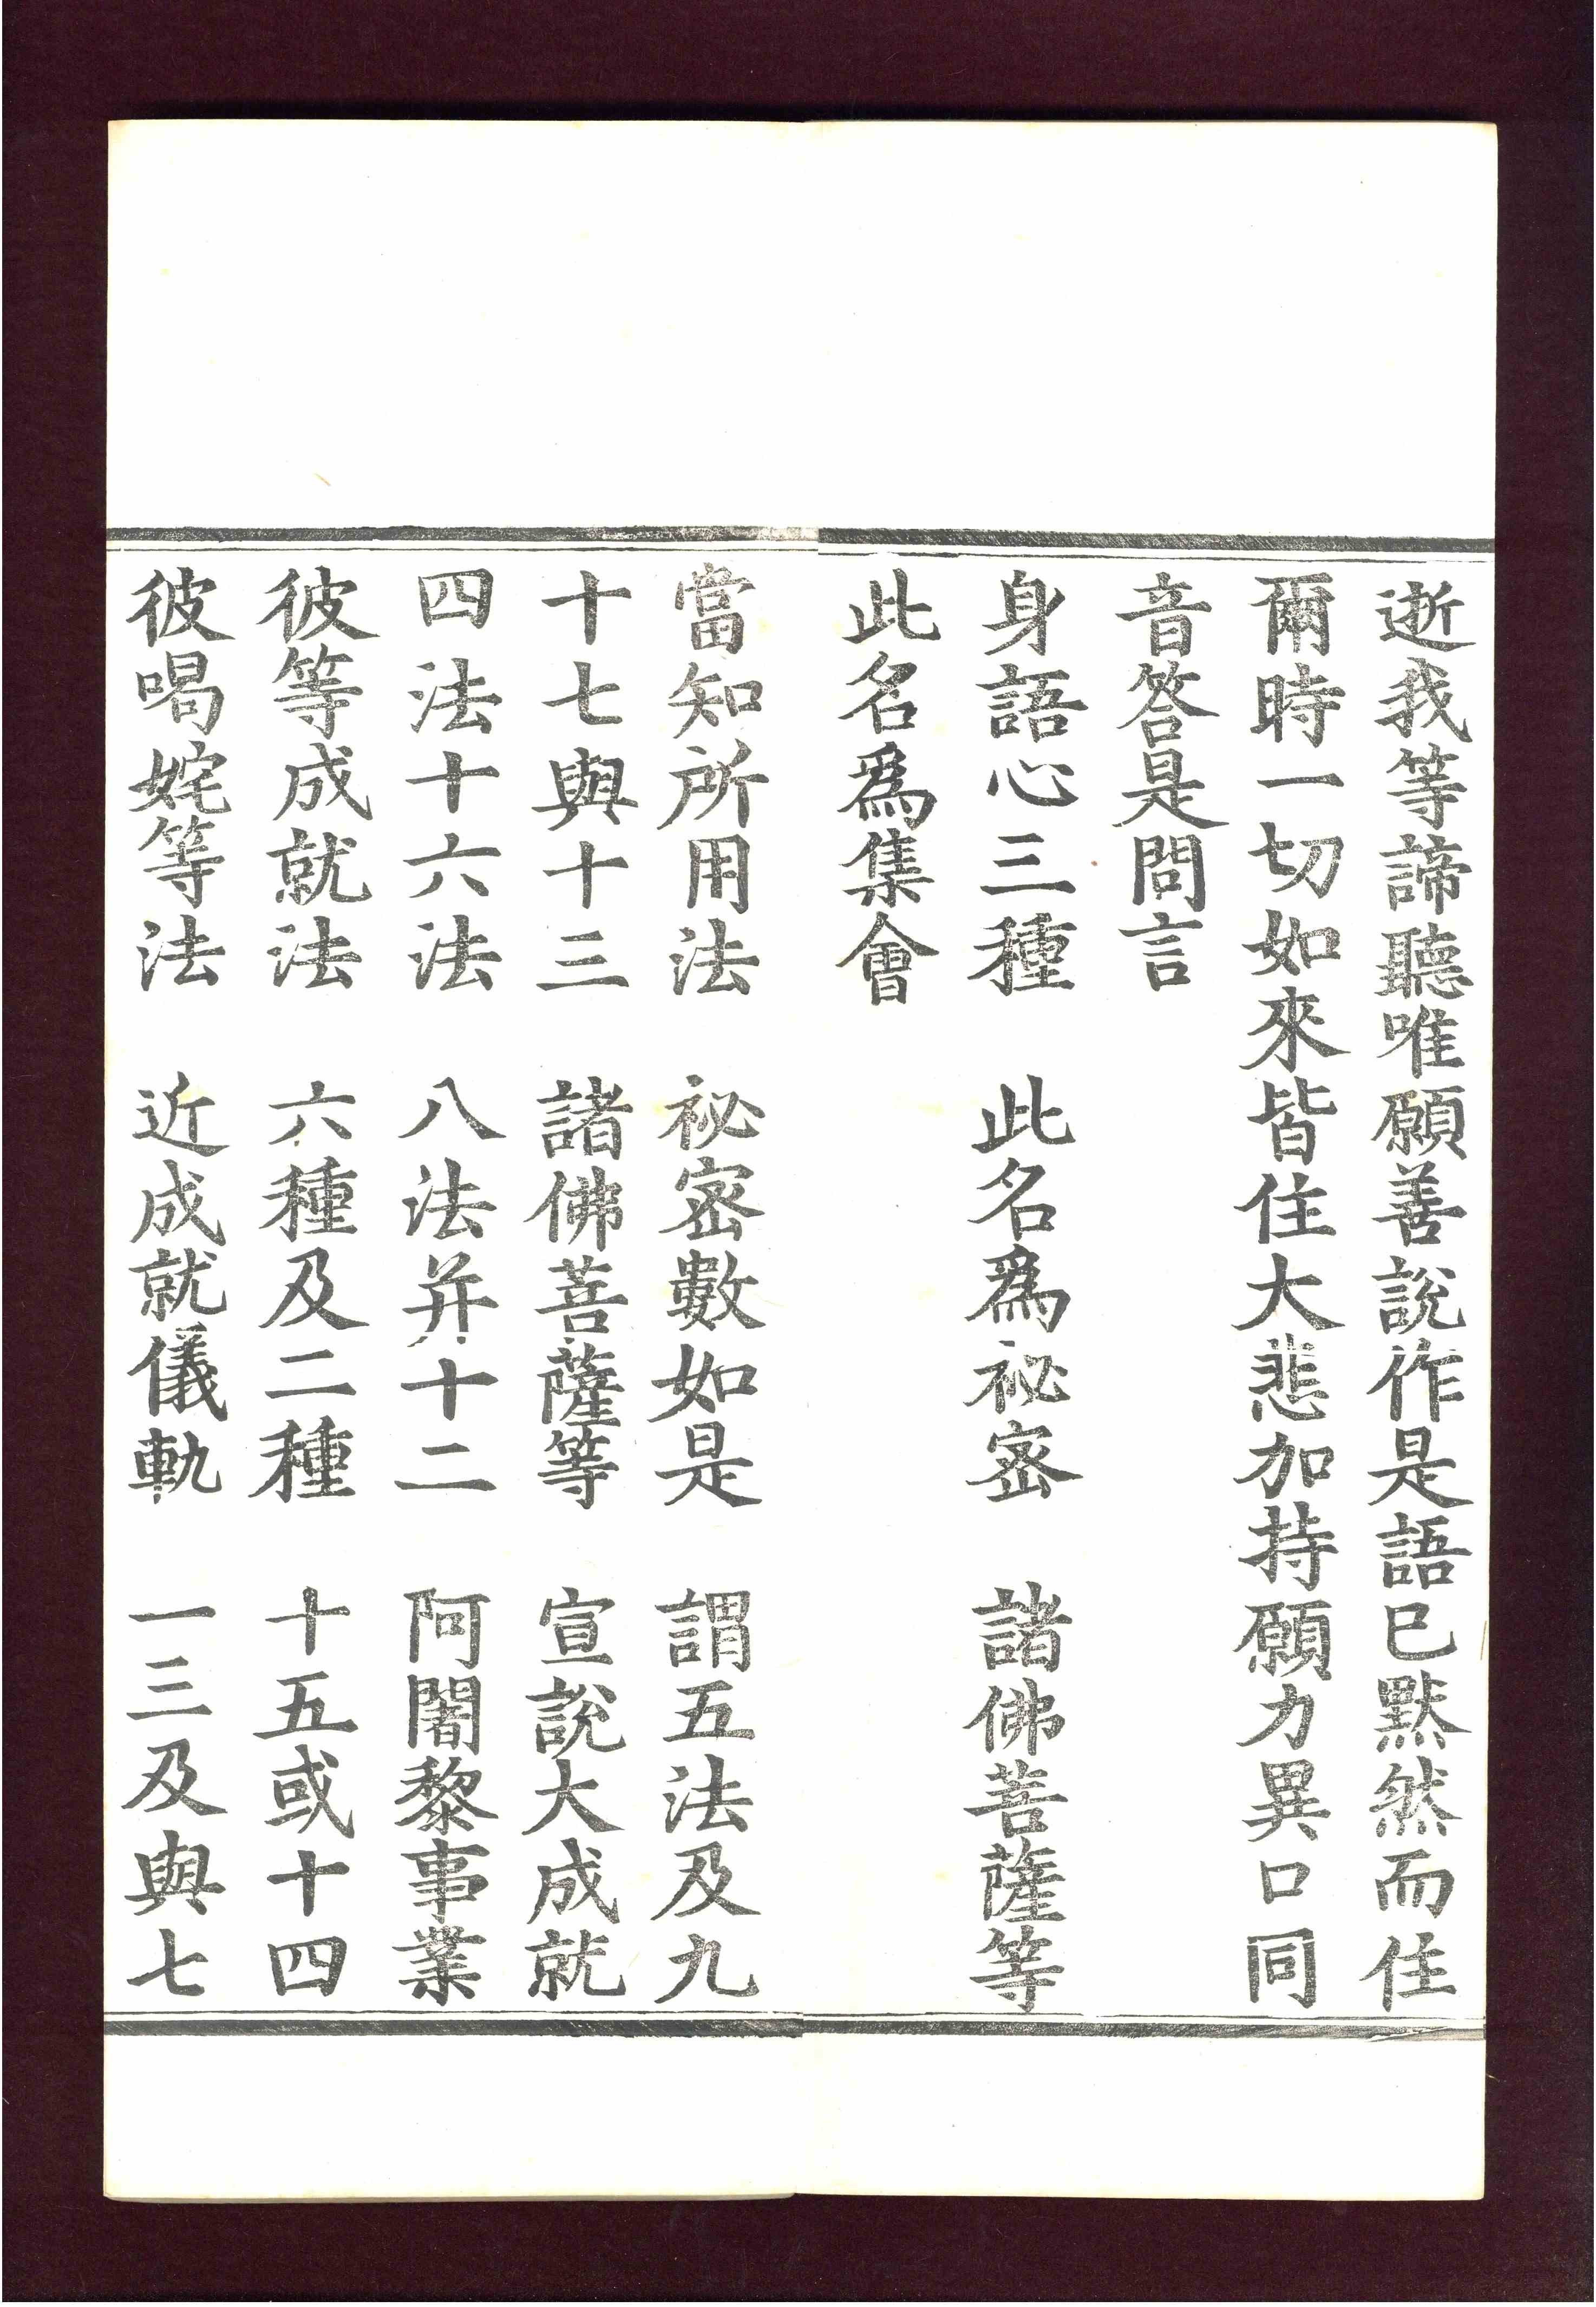 逝我等諦聽唯願善說作是語已默然而住
爾時一切如來皆住大悲加持願力異口同
音答是問言
身語心三種　此名爲祕密　諸佛菩薩等
此名爲集會
當知所用法　祕密數如是　謂五法及九
十七與十三　諸佛菩薩等　宣說大成就
四法十六法　八法并十二　阿闍黎事業
彼等成就法　六種及二種　十五或十四
彼喝姹等法　近成就儀軌　一三及與七